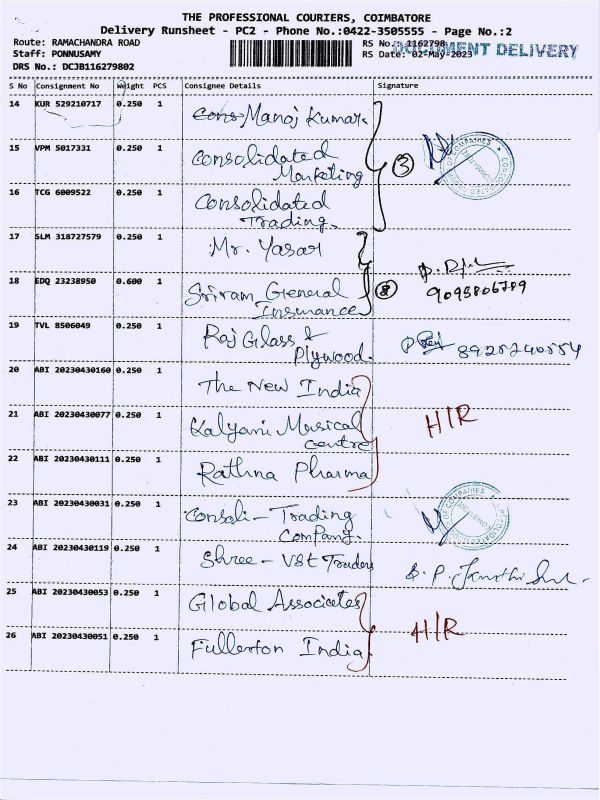 THE PROFESSIONAL COURIERS, COIMBATORE
Delivery Runsheet - PC2 - Phone No.:0422-3505555 - Page No.:2
Route: RAMACHANDRA ROAD
RS No.: 1162798
DOCUMENT DELIVERY
Staff: PONNUSAMY
RS Date: 02-May-2023
DRS No.: DCJB116279802
S No Consignment No Weight PCS Consignee Details Signature
14 KUR 529210717 0.250 1 Cons Manoj Kumar.
15 VPM 5017331 0.250 1 Consolidated
Marketing
3
16 TCG 6009522 0.250 1 Consolidated
Trading.
17 SLM 318727579 0.250 1 Mr. Yasar
18 EDQ 23238950 0.600 1 Sriram General
Insurance
9095806789
19 TVL 8506049 0.250 1 Raj Glass &
Plywood.
8925240554
20 ABI 20230430160 0.250 1 The New India
21 ABI 20230430077 0.250 1 Kalyani Musical
centre
H/R
22 ABI 20230430111 0.250 1 Rathna Pharma
23 ABI 20230430031 0.250 1 Consoli - Trading
Company.
24 ABI 20230430119 0.250 1 Shree - VBt Traders
25 ABI 20230430053 0.250 1 Global Associates
26 ABI 20230430051 0.250 1 Fullerton India
H/R